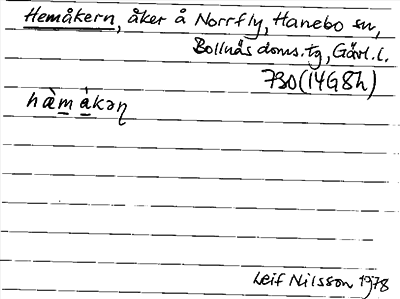 Hemåkern, åker å Norrfly, Hanebo sn,
Bollnäs doms.tg, Gävl.l.
730 (14G8h)
hὰm ákəɳ
Leif Nilsson 1978